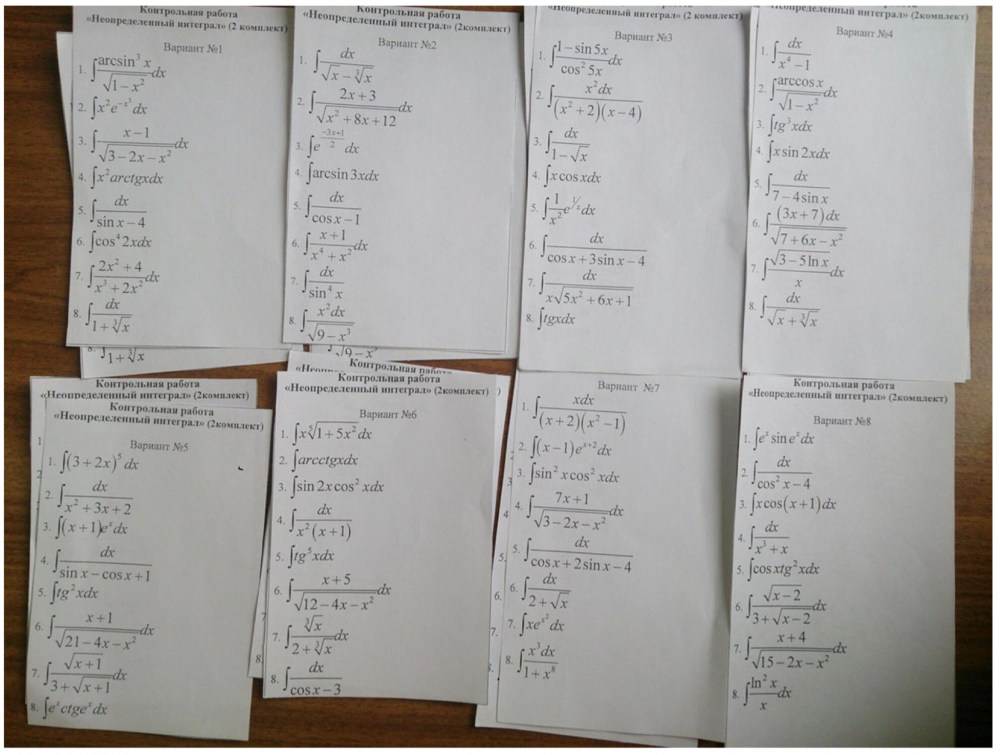 Контрольная работа
«Неопределенный интеграл» (2 комплект)
Вариант №1
1. ∫ arcsin³ x / √(1 − x²) dx
2. ∫ x²e^(−x³) dx
3. ∫ (x − 1) / √(3 − 2x − x²) dx
4. ∫ x² arctgxdx
5. ∫ dx / (sin x − 4)
6. ∫ cos⁴ 2xdx
7. ∫ (2x² + 4) / (x³ + 2x²) dx
8. ∫ dx / (1 + ∛x)
8. ∫ 1 + ∛x
Контрольная работа
«Неопределенный интеграл» (2 комплект)
Вариант №2
1. ∫ dx / √(x − ∛x)
2. ∫ (2x + 3) / √(x² + 8x + 12) dx
3. ∫ e^((−3x+1)/2) dx
4. ∫ arcsin 3xdx
5. ∫ dx / (cos x − 1)
6. ∫ (x + 1) / (x⁴ + x²) dx
7. ∫ dx / sin⁴ x
8. ∫ x²dx / √(9 − x³)
√9 − x
«Неопределенный интеграл» (2 комплект)
Вариант №3
1. ∫ (1 − sin 5x) / cos² 5x dx
2. ∫ x²dx / ((x² + 2)(x − 4))
3. ∫ dx / (1 − √x)
4. ∫ x cos xdx
5. ∫ (1/x²) e^(1/x) dx
6. ∫ dx / (cos x + 3 sin x − 4)
7. ∫ dx / (x√(5x² + 6x + 1))
8. ∫ tgxdx
«Неопределенный интеграл» (2 комплект)
Вариант №4
1. ∫ dx / (x⁴ − 1)
2. ∫ arccos x / √(1 − x²) dx
3. ∫ tg³xdx
4. ∫ x sin 2xdx
5. ∫ dx / (7 − 4 sin x)
6. ∫ (3x + 7)dx / √(7 + 6x − x²)
7. ∫ √(3 − 5 ln x) / x dx
8. ∫ dx / (√x + ∛x)
Контрольная работа
«Неопределенный интеграл» (2комплект)
Контрольная работа
«Неопределенный интеграл» (2комплект)
Вариант №5
1. ∫ (3 + 2x)⁵ dx
2. ∫ dx / (x² + 3x + 2)
3. ∫ (x + 1)eˣdx
4. ∫ dx / (sin x − cos x + 1)
5. ∫ tg²xdx
6. ∫ (x + 1) / √(21 − 4x − x²) dx
7. ∫ √(x + 1) / (3 + √(x + 1)) dx
8. ∫ eˣctgeˣdx
Контрольная работа
Контрольная работа
«Неопределенный интеграл» (2комплект)
Вариант №6
1. ∫ x ⁵√(1 + 5x²) dx
2. ∫ arcctgxdx
3. ∫ sin 2x cos² xdx
4. ∫ dx / (x²(x + 1))
5. ∫ tg⁵xdx
6. ∫ (x + 5) / √(12 − 4x − x²) dx
7. ∫ ∛x / (2 + ∛x) dx
8. ∫ dx / (cos x − 3)
Вариант №7
1. ∫ xdx / ((x + 2)(x² − 1))
2. ∫ (x − 1)e^(x+2)dx
3. ∫ sin² x cos² xdx
4. ∫ (7x + 1) / √(3 − 2x − x²) dx
5. ∫ dx / (cos x + 2 sin x − 4)
6. ∫ dx / (2 + √x)
7. ∫ xe^(x²) dx
8. ∫ x³dx / (1 + x⁸)
Контрольная работа
«Неопределенный интеграл» (2комплект)
Вариант №8
1. ∫ eˣ sin eˣdx
2. ∫ dx / (cos² x − 4)
3. ∫ x cos(x + 1)dx
4. ∫ dx / (x³ + x)
5. ∫ cos xtg²xdx
6. ∫ √(x − 2) / (3 + √(x − 2)) dx
7. ∫ (x + 4) / √(15 − 2x − x²) dx
8. ∫ ln² x / x dx